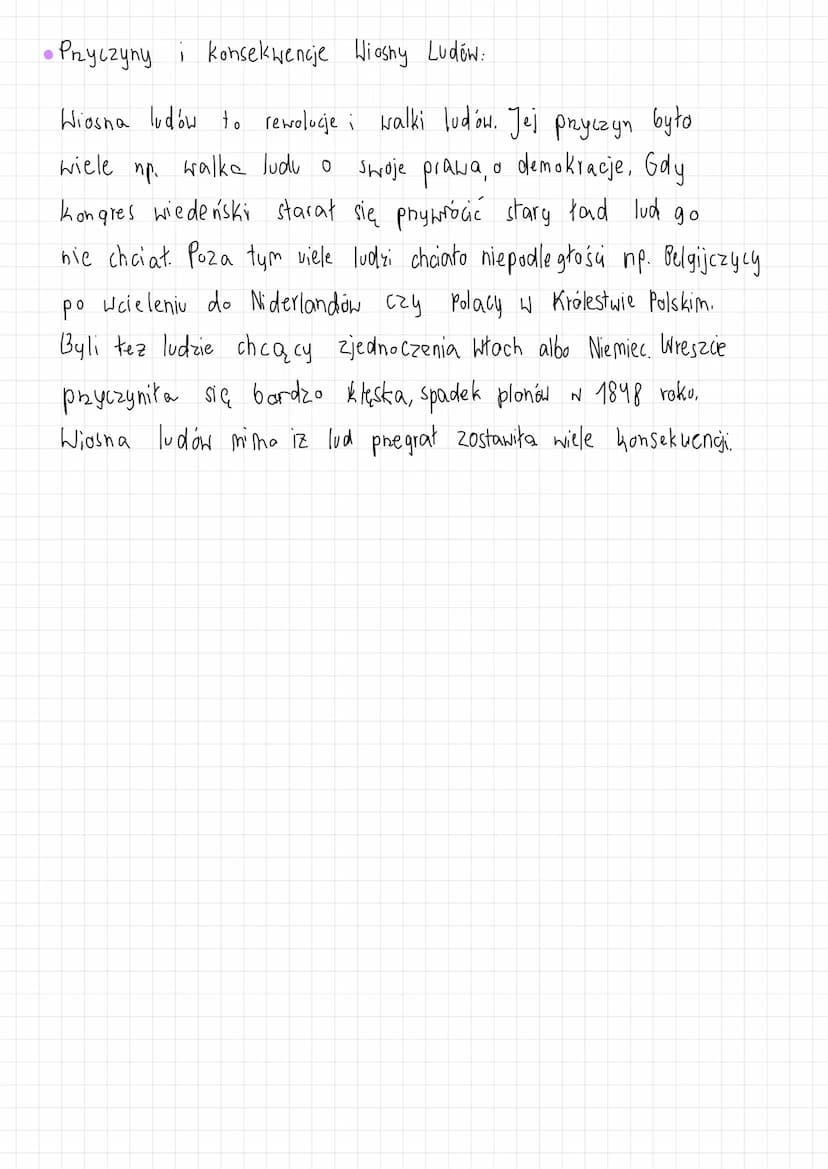 Przyczyny i konsekwencje Wiosny Ludów:
Wiosna ludów to rewolucje i walki ludów. Jej przyczyn było
wiele np. walka ludu o swoje prawa, o demokracje, Gdy
kongres wiedeński starał się przywrócić stary ład lud go
nie chciał. Poza tym wiele ludzi chciało niepodległości np. Belgijczycy
po wcieleniu do Niderlandów czy Polacy w Królestwie Polskim.
Byli tez ludzie chcący zjednoczenia Włoch albo Niemiec. Wreszcie
przyczyniła się bardzo klęska, spadek plonów w 1848 roku.
Wiosna ludów mimo iz lud przegrał zostawiła wiele konsekwencji.